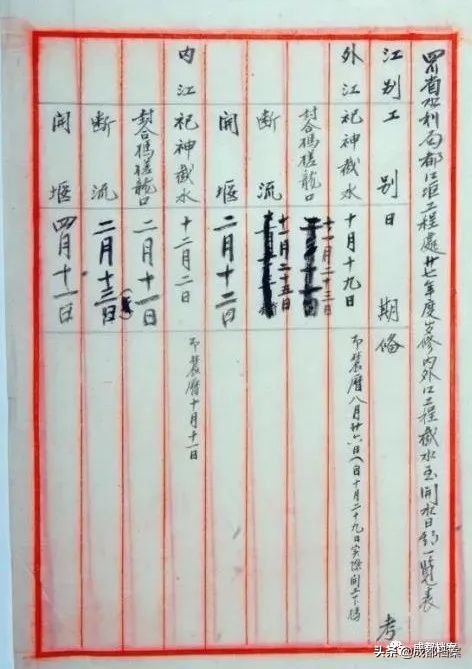 四川省水利局都江堰工程處廿七年度岁修內外江工程截水至開水日期一覽表
江別 工別 日期 備考
外江 祀神截水 十月十九日 即農曆八月廿六日 十月二十九日实際開工下榪
封合榪槎龍口 十一月二十三日
断流 十一月二十五日
開堰 二月十二日
內江 祀神截水 十二月二日 即農曆十月十一日
封合榪槎龍口 二月十一日
断流 二月十三日
開堰 四月十一日
成都档案
头条@成都档案